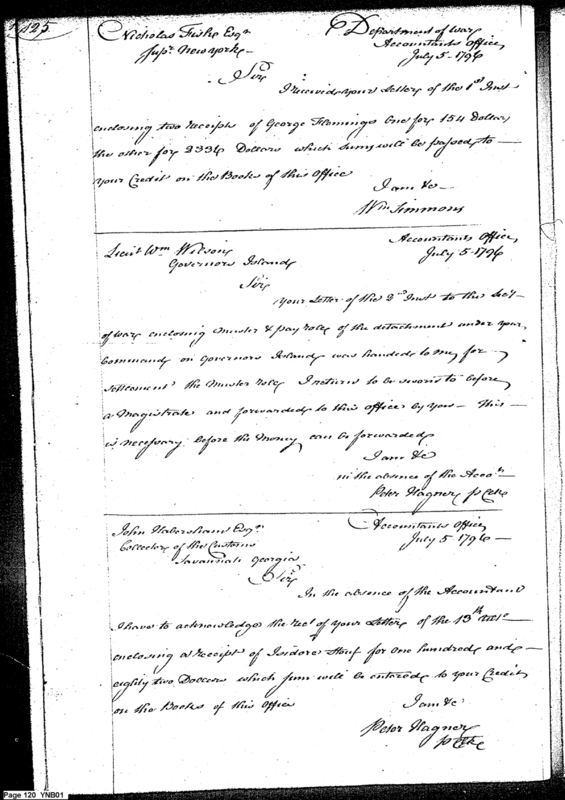 125.
Nicholas Fish Esqr
Supr. New York
Department of War
Accountants Office
July 5 - 1796
Sir
I received your Letter of the 1st Inst
enclosing two receipts of George Flemming One for 154 Dollars
the other for 2336 Dollars which sums will be passed to
your Credit on the Books of this Office
I am &c
Wm Simmons
Lieut Wm Wilson
Governors Island
Accountants Office
July 5 - 1796
Sir
Your Letter of the 2nd Inst to the Secy
of War enclosing muster & pay role of the detachment under your
Command on Governors Island was handed to me for
settlement the Muster role I return to be sworn to before
a Magistrate and forwarded to this office by you - This
is necessary before the Money can be forwarded
I am &c
in the absence of the Accot
Peter Hagner p Clk
John Habersham Esqr
Collector of the Customs
Savannah Georgia
Accountants Office
July 5 - 1796
Sir
In the absence of the Accountant
I have to acknowledge the rect of your Letter of the 13th
enclosing a receipt of Isidore for One hundred and
eighty two Dollars which sum will be entered to your Credit
on the Books of this Office
I am &c
Peter Hagner
p Clk
Page 120 YNB01